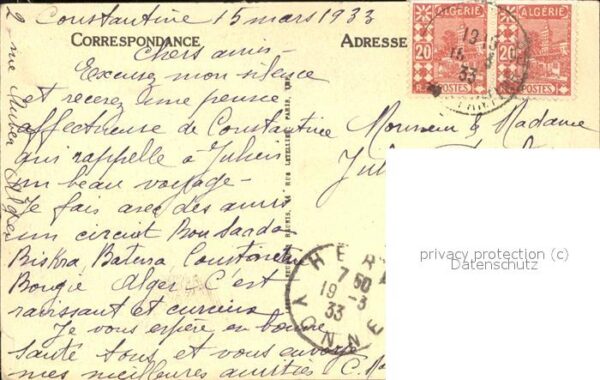 Constantine 15 mars 1933
CORRESPONDANCE
ADRESSE
ALGÉRIE
ALGÉRIE
20
20
POSTES
POSTES
Chers amis
Excusez mon silence
et recevez une pensée
affectueuse de Constantine
qui rappelle à Julien
un beau voyage -
Je fais avec des amis
un circuit Bou Saada
Biskra Batna Constantine
Bougie Alger C'est
ravissant et curieux
Je vous espère en bonne
santé tous et vous envoie
mes meilleures amitiés C.
2 rue Alger
Monsieur & Madame
Jul
7 50
19 -3
33
privacy protection (c)
Datenschutz